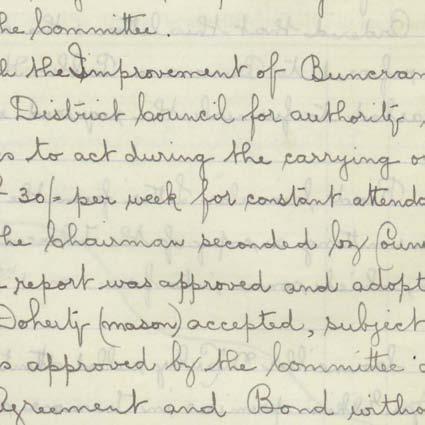 the Committee.
the Improvement of Buncran
District Council for authority
s to act during the carrying o
30/= per week for constant attenda
the Chairman seconded by Coun
report was approved and adopt
Doherty (mason) accepted, subject
s approved by the Committee
Agreement and Bond witho